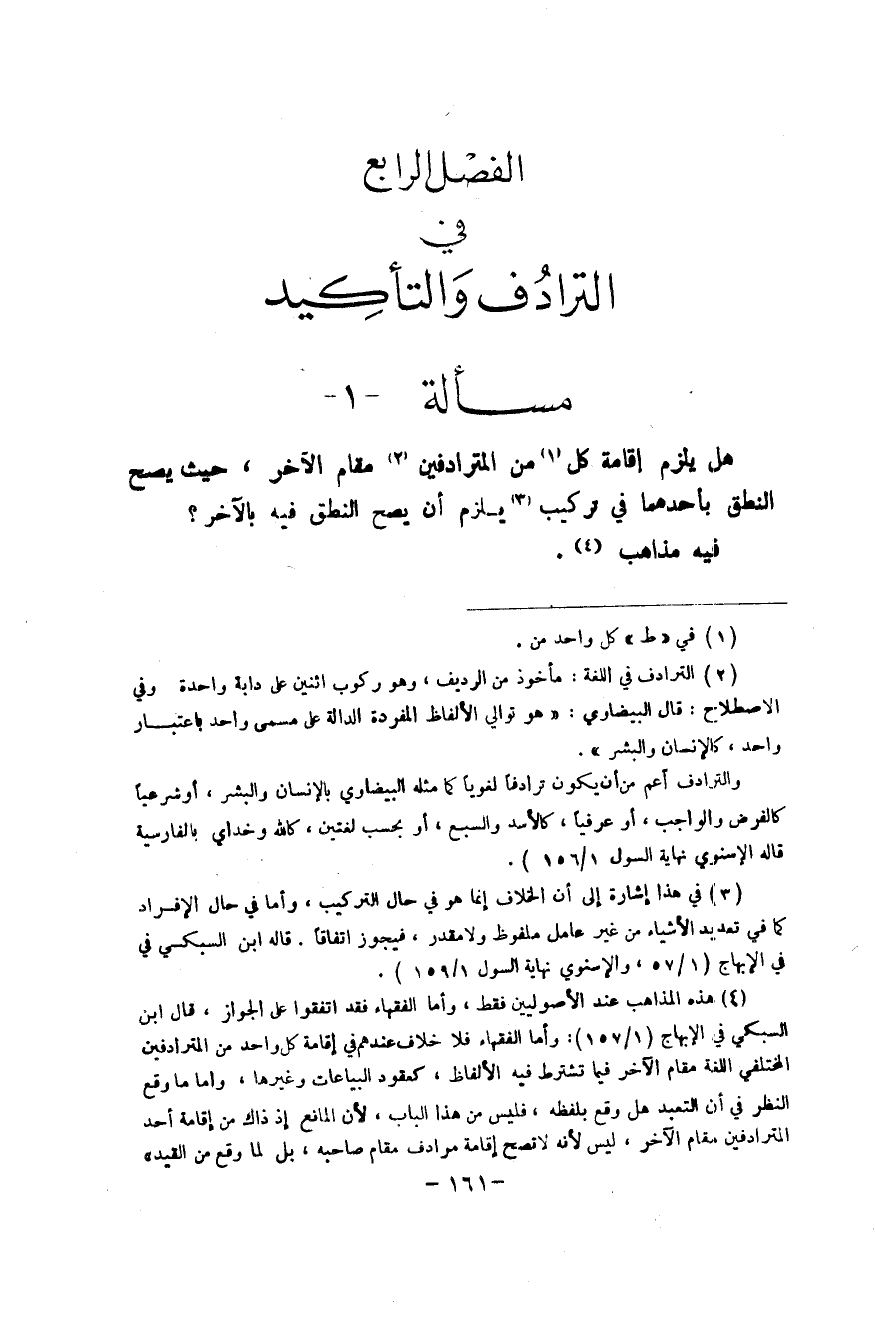 الفصل الرابع
في
الترادُف وَالتأكِيد
مسألة -١-
هل يلزم إقامة كل (١) من المترادفين (٢) مقام الآخر ، حيث يصح
النطق بأحدهما في تركيب (٣) يلزم أن يصح النطق فيه بالآخر ؟
فيه مذاهب (٤) .
(١) في « ط » كل واحد من .
(٢) الترادف في اللغة : مأخوذ من الرديف ، وهو ركوب اثنين على دابة واحدة وفي
الاصطلاح : قال البيضاوي : « هو توالي الألفاظ المفردة الدالة على مسمى واحد باعتبار
واحد ، كالإنسان والبشر » .
والترادف أعم من أن يكون ترادفاً لغوياً كما مثله البيضاوي بالإنسان والبشر ، أو شرعياً
كالفرض والواجب ، أو عرفياً ، كالأسد والسبع ، أو بحسب لغتين ، كالله وخداي بالفارسية
قاله الإسنوي نهاية السول ١٥٦/١ ) .
(٣) في هذا إشارة إلى أن الخلاف إنما هو في حال التركيب ، وأما في حال الإفراد
كما في تعديد الأشياء من غير عامل ملفوظ ولا مقدر ، فيجوز اتفاقاً . قاله ابن السبكي في
في الإبهاج (٥٧/١ ، والإسنوي نهاية السول ١٥٩/١ ) .
(٤) هذه المذاهب عند الأصوليين فقط ، وأما الفقهاء فقد اتفقوا على الجواز ، قال ابن
السبكي في الإبهاج (١٥٧/١): وأما الفقهاء فلا خلاف عندهم في إقامة كل واحد من المترادفين
المختلفي اللغة مقام الآخر فيما تشترط فيه الألفاظ ، كعقود البياعات وغيرها ، واما ما وقع
النظر في أن التعبد هل وقع بلفظه ، فليس من هذا الباب ، لأن المانع إذ ذاك من إقامة أحد
المترادفين مقام الآخر ، ليس لأنه لا تصح إقامة مرادف مقام صاحبه ، بل لما وقع من القيد»
- ١٦١ -